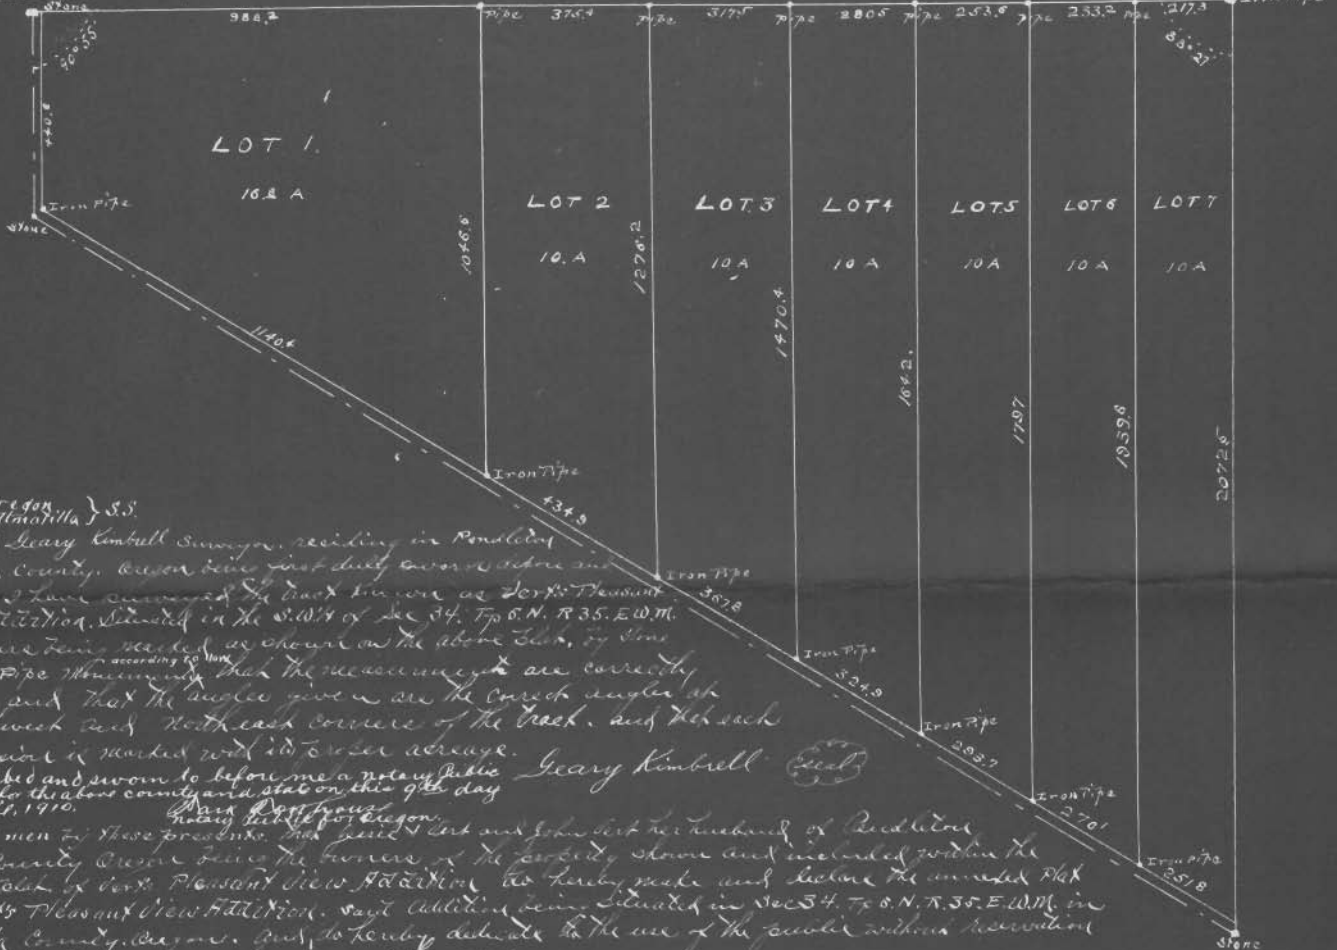 Stone 988.2 Pipe 375.4 Pipe 317.5 Pipe 280.5 Pipe 253.6 Pipe 233.2 Pipe 217.3
90°55
88°27
440.8
LOT 1.
16.2 A
Iron Pipe
Stone
LOT 2 LOT 3 LOT 4 LOT 5 LOT 6 LOT 7
10. A 10 A 10 A 10 A 10 A 10 A
1046.6
1276.2
1470.4
1642.
1797
1939.6
2072.6
1140.4
Iron Pipe
434.9
Iron Pipe
367.8
Iron Pipe
324.9
Iron Pipe
293.7
Iron Pipe
270.1
Iron Pipe
251.8
Stone
} S.S.
Geary Kimbrell Surveyor, residing in Pendleton
County. Oregon being first duly sworn depose and
I have surveyed the tract known as Pleasant
Situated in the S.W¼ of Sec 34. Tp 6. N. R 35. E.W.M.
being marked as shown on the above Plat. by stone
Pipe Monuments according to that the measurements are correctly
and that the angles given are the correct angles at
west and Northeast corners of the tract. and that each
is marked with its proper acreage.
bed and sworn to before me a notary Public Geary Kimbrell seal
for the above county and stat on this 9th day
1910.
notary Public for Oregon.
men by these presents. that and John her husband of Pendleton
County Oregon being the owners of the property shown and included within the
plat of Pleasant View Addition do hereby make and declare the annexed Plat
Pleasant View Addition. said addition being Situated in Sec 34. Tp 6. N. R. 35. E.W.M. in
County. Oregon. and, do hereby dedicate to the use of the public without reservation